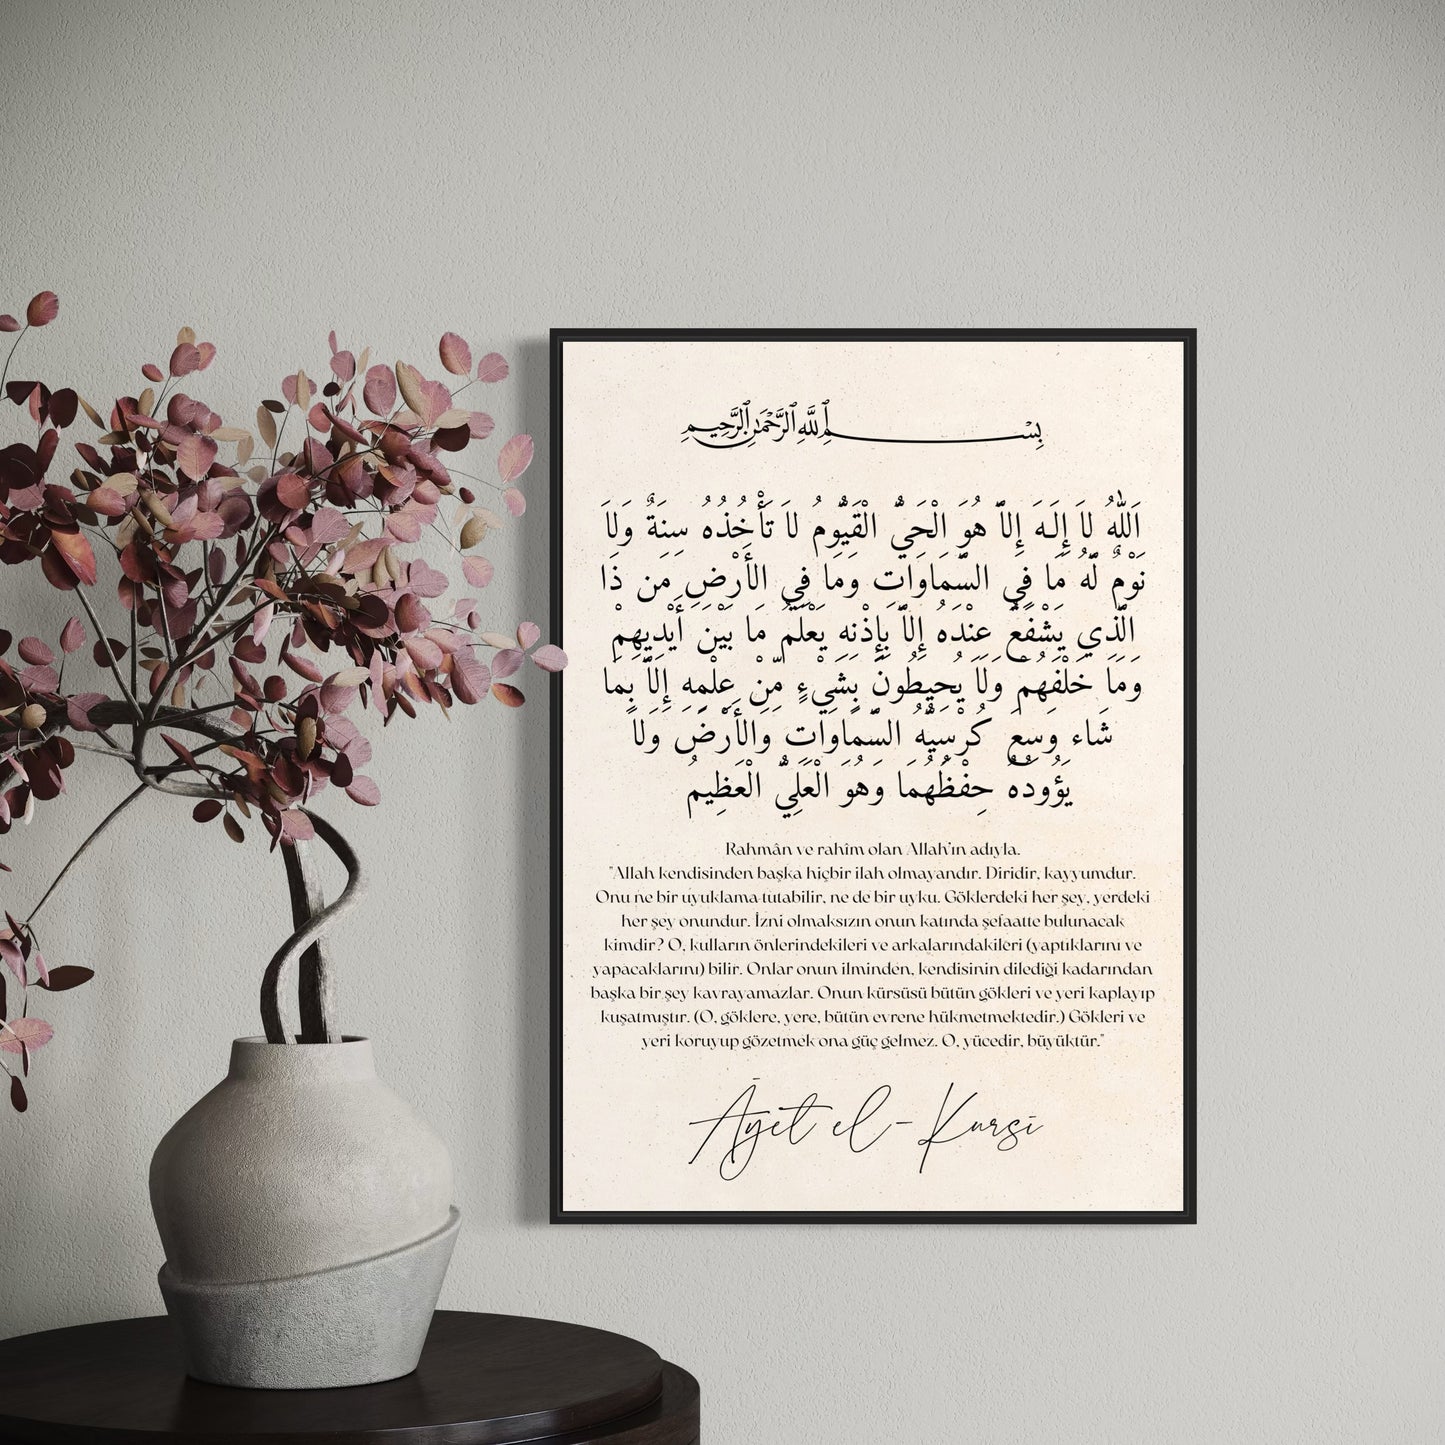 بِسْمِ ٱللَّهِ ٱلرَّحْمَٰنِ ٱلرَّحِيمِ
اَللّهُ لاَ إِلَـهَ إِلاَّ هُوَ الْحَيُّ الْقَيُّومُ لاَ تَأْخُذُهُ سِنَةٌ وَلاَ
نَوْمٌ لَّهُ مَا فِي السَّمَاوَاتِ وَمَا فِي الأَرْضِ مَن ذَا
الَّذِي يَشْفَعُ عِنْدَهُ إِلاَّ بِإِذْنِهِ يَعْلَمُ مَا بَيْنَ أَيْدِيهِمْ
وَمَا خَلْفَهُمْ وَلاَ يُحِيطُونَ بِشَيْءٍ مِّنْ عِلْمِهِ إِلاَّ بِمَا
شَاء وَسِعَ كُرْسِيُّهُ السَّمَاوَاتِ وَالأَرْضَ وَلاَ
يَؤُودُهُ حِفْظُهُمَا وَهُوَ الْعَلِيُّ الْعَظِيمُ
Rahmân ve rahîm olan Allah'ın adıyla.
"Allah kendisinden başka hiçbir ilah olmayandır. Diridir, kayyumdur.
Onu ne bir uyuklama tutabilir, ne de bir uyku. Göklerdeki her şey, yerdeki
her şey onundur. İzni olmaksızın onun katında şefaatte bulunacak
kimdir? O, kulların önlerindekileri ve arkalarındakileri (yaptıklarını ve
yapacaklarını) bilir. Onlar onun ilminden, kendisinin dilediği kadarından
başka bir şey kavrayamazlar. Onun kürsüsü bütün gökleri ve yeri kaplayıp
kuşatmıştır. (O, göklere, yere, bütün evrene hükmetmektedir.) Gökleri ve
yeri koruyup gözetmek ona güç gelmez. O, yücedir, büyüktür."
Âyet el-Kursî